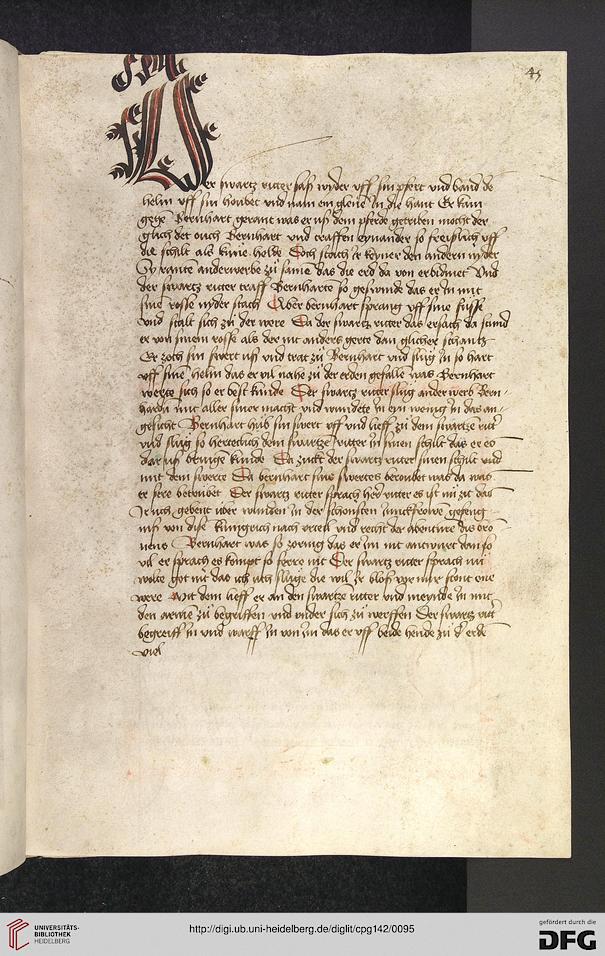 45
Der swartz ritter saß wyder vff sin pfert vnd band de
helm vff sin houbet vnd nam ein glene In die hant Er kam
gege Bernhart gerant was er vß dem pferde getriben mocht der
glich det ouch Bernhart vnd traffen eynander so freißlich vff
die schilt als kune helde Doch stach Ir keyner den andern nyder
Sy rante anderwerbe zu same das die erd da von erbidmet Vnd
der swartz ritter traff Bernharte so geswinde das er In mit
sine rosse nyder stach Aber bernhart sprang vff sine fusse
vnd stalt sich zu der were Da der swartz ritter das ersach da stund
er von sinem rosse als der nit anders gert dan glicher schantz
Er zoch sin swert vß vnd trat zu Bernhart vnd slug In so hart
vff sine helm das er vil nahe zu der erden gefalle was Bernhart
werte sich so er best kunde Der swartz ritter slug anderwerb Bern-
harten mit aller siner macht vnd wundete In eyn wenig In das an-
gesicht Bernhart hub sin swert vff vnd lieff zu dem swartze ritt
vnd slug so hertteclich dem swartze ritter In sinen schilt das er es
dar vß bringe kunde Da zuckt der swartz ritter sinen schilt vnd
mit dem swerte Da bernhart sins swertes beroubet was da was
er sere betrubet Der swartz ritter sprach her ritter es ist nu zit das
Ir uch gebent vber wunden In der schonsten Junckfrowe gefeng-
niß von dise kunigrich nach vrteil vnd recht der abenture des oro
nens Bernhart was so zornig das er Im nit antwurt dan so
vil er sprach es kompt so ferre nit Der swartz ritter sprach nu
wolte got nit das ich uch sluge die wil Ir bloß vor mir stont one
were Mit dem lieff er an den swartze ritter vnd meynde In mit
den armen zu begriffen vnd vnder sich zu werffen Der swartz ritt
begreiff In vnd warff In von Im das er vff beide hende zu d erde
viel
UNIVERSITÄTS-
BIBLIOTHEK
HEIDELBERG
http://digi.ub.uni-heidelberg.de/diglit/cpg142/0095
gefördert durch die
DFG